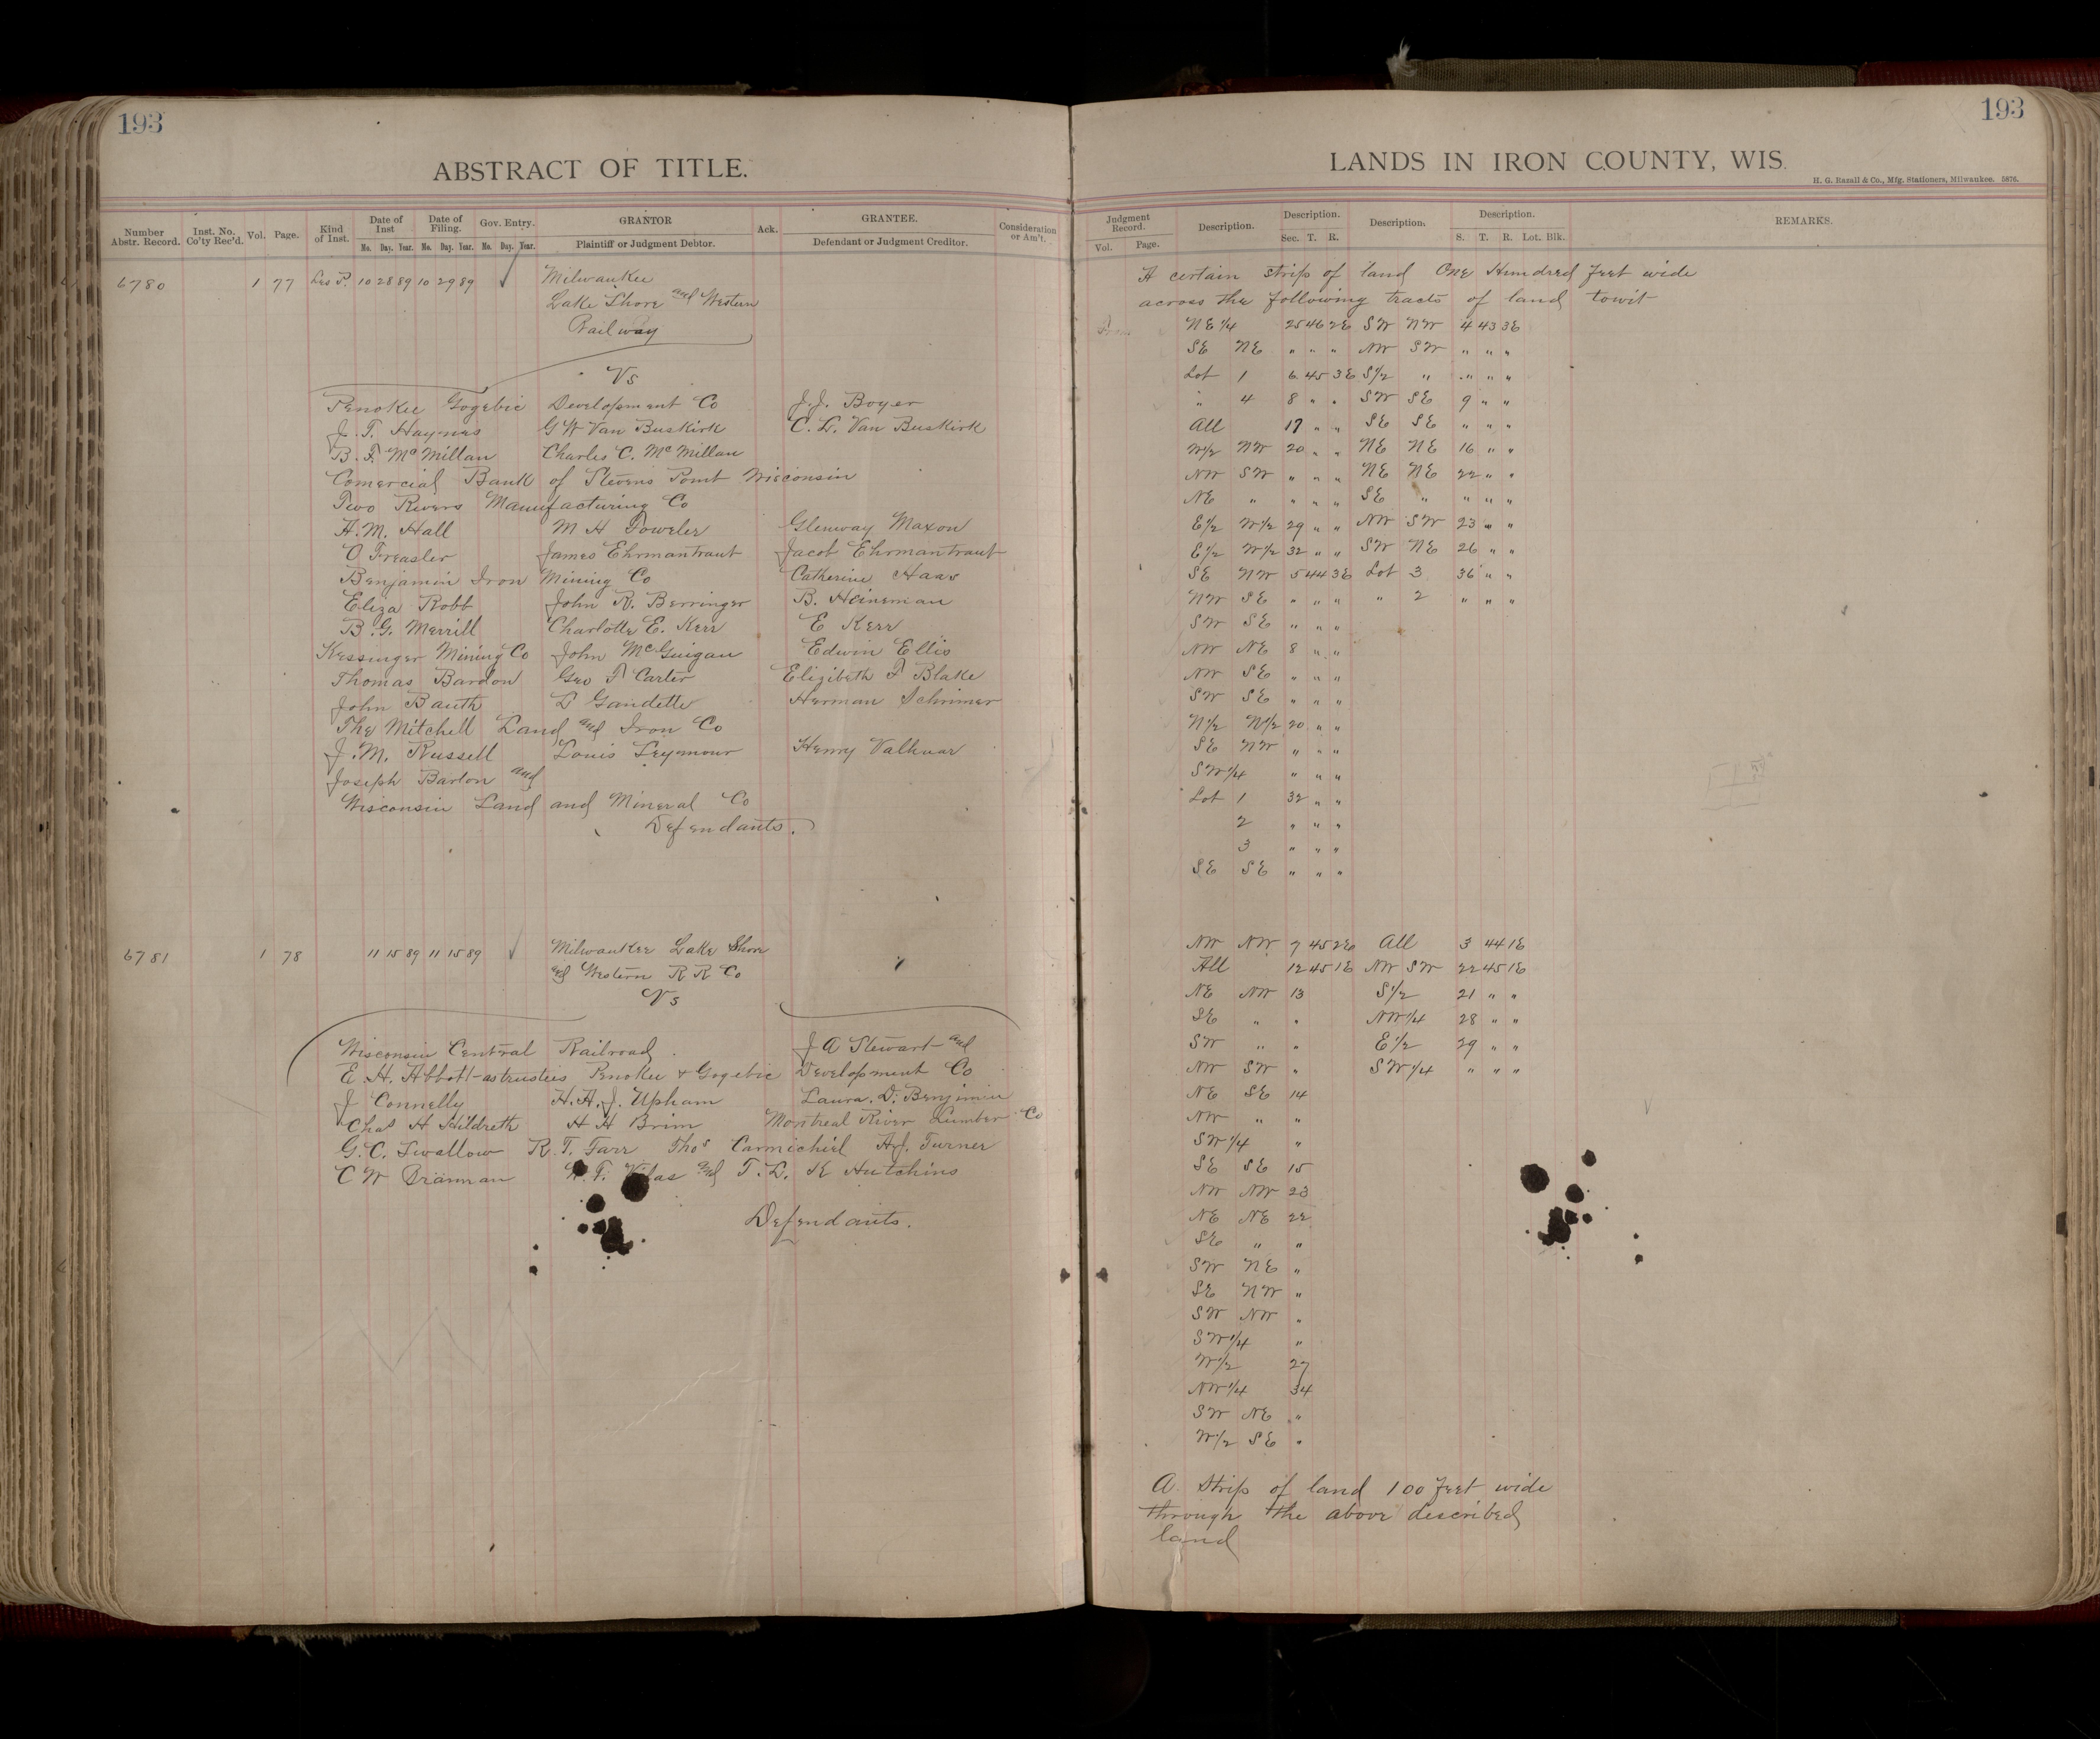 193
ABSTRACT OF TITLE.
Number Abstr. Record. Inst. No. Co'ty Rec'd. Vol. Page. Kind of Inst. Date of Inst Mo. Day. Year. Date of Filing. Mo. Day. Year. Gov. Entry. Mo. Day. Year. GRANTOR Plaintiff or Judgment Debtor. Ack. GRANTEE. Defendant or Judgment Creditor. Consideration or Am't.
6780 1 77 Les P. 10 28 89 10 29 89 Milwaukee
Lake Shore and Western
Railway
Vs
Penokee Gogebic Development Co J.J. Boyer
J. T. Haynes G W Van Buskirk C. L. Van Buskirk
B. F. McMillan Charles C. McMillan
Comercial Bank of Stevens Point Wisconsin
Two Rivers Manufacturing Co
H. M. Hall M H Doweler Glenway Maxon
O Freasler James Ehrmantraut Jacob Ehrmantraut
Benjamin Iron Mining Co Catherine Haas
Eliza Robb John R. Berringer B. Heineman
B. G. Merrill Charlotte E. Kerr E Kerr
Kessinger Mining Co John McGuigan Edwin Ellis
Thomas Bardon Geo F Carter Elizibeth F Blake
John Bauth L Gandette Herman Schrimer
The Mitchell Land and Iron Co
J. M. Russell Louis Leymour Henry Valhuar
Joseph Barlon and
Wisconsin Land and Mineral Co
Defendants.
6781 1 78 11 15 89 11 15 89 Milwaukee Lake Shore
and Western R R Co
Vs
Wisconsin Central Railroad. J A Stewart and
E. H. Abbott-as trustees Penokee & Gogebic Development Co
J Connelly H. A. J. Upham Laura. D. Benjimin
Chas H Hildreth H H Brim Montreal River Lumber Co
G. C. Swallow R. T. Farr Thos Carmichiel A J. Turner
C W Braman F. Vilas and T. L. K Hutchins
Defendants.
193
LANDS IN IRON COUNTY, WIS.
H. G. Razall & Co., Mfg. Stationers, Milwaukee. 5876.
Judgment Record. Vol. Page. Description. Description. Sec. T. R. Description. Description. S. T. R. Lot. Blk. REMARKS.
A certain strip of land One Hundred feet wide
across the following tracts of land towit
NE 1/4 25 46 2E SW NW 4 43 3E
SE NE " " " NW SW " " "
Lot 1 6 45 3E S1/2 " " " "
" 4 8 " " SW SE 9 " "
All 17 " " SE SE " " "
W1/2 NW 20 " " NE NE 16 " "
NW SW " " " NE NE 22 " "
NE " " " " SE " " " "
E1/2 W1/2 29 " " NW SW 23 " "
E1/2 W1/2 32 " " SW NE 26 " "
SE NW 5 44 3E Lot 3 36 " "
NW SE " " " " 2 " " "
SW SE " " "
NW NE 8 " "
NW SE " " "
SW SE " " "
N1/2 N1/2 20 " "
SE NW " " "
SW 1/4 " " "
Lot 1 32 " "
2 " " "
3 " " "
SE SE " " "
NW NW 7 45 2E All 3 44 1E
All 12 45 1E NW SW 22 45 1E
NE NW 13 S1/2 21 " "
SE " " NW 1/4 28 " "
SW " " E1/2 29 " "
NW SW " SW 1/4 " " "
NE SE 14
NW " "
SW 1/4 "
SE SE 15
NW NW 23
NE NE 22
SE " "
SW NE "
SE NW "
SW NW "
SW 1/4 "
W1/2 27
NW 1/4 34
SW NE "
W1/2 SE "
A. Strip of land 100 feet wide
through the above described
land